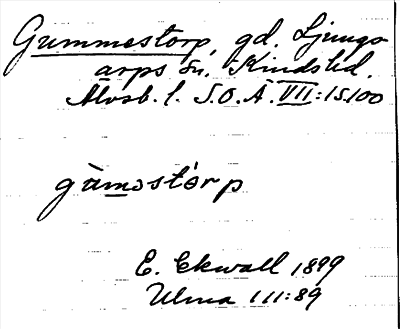 Gummestorp, gd. Ljungs-
arps sn. Kinds hd.
Älvsb. l. S.O.Ä. VII:1 s. 100
gàmostórp
E. Ekwall 1899
Ulma 111:89